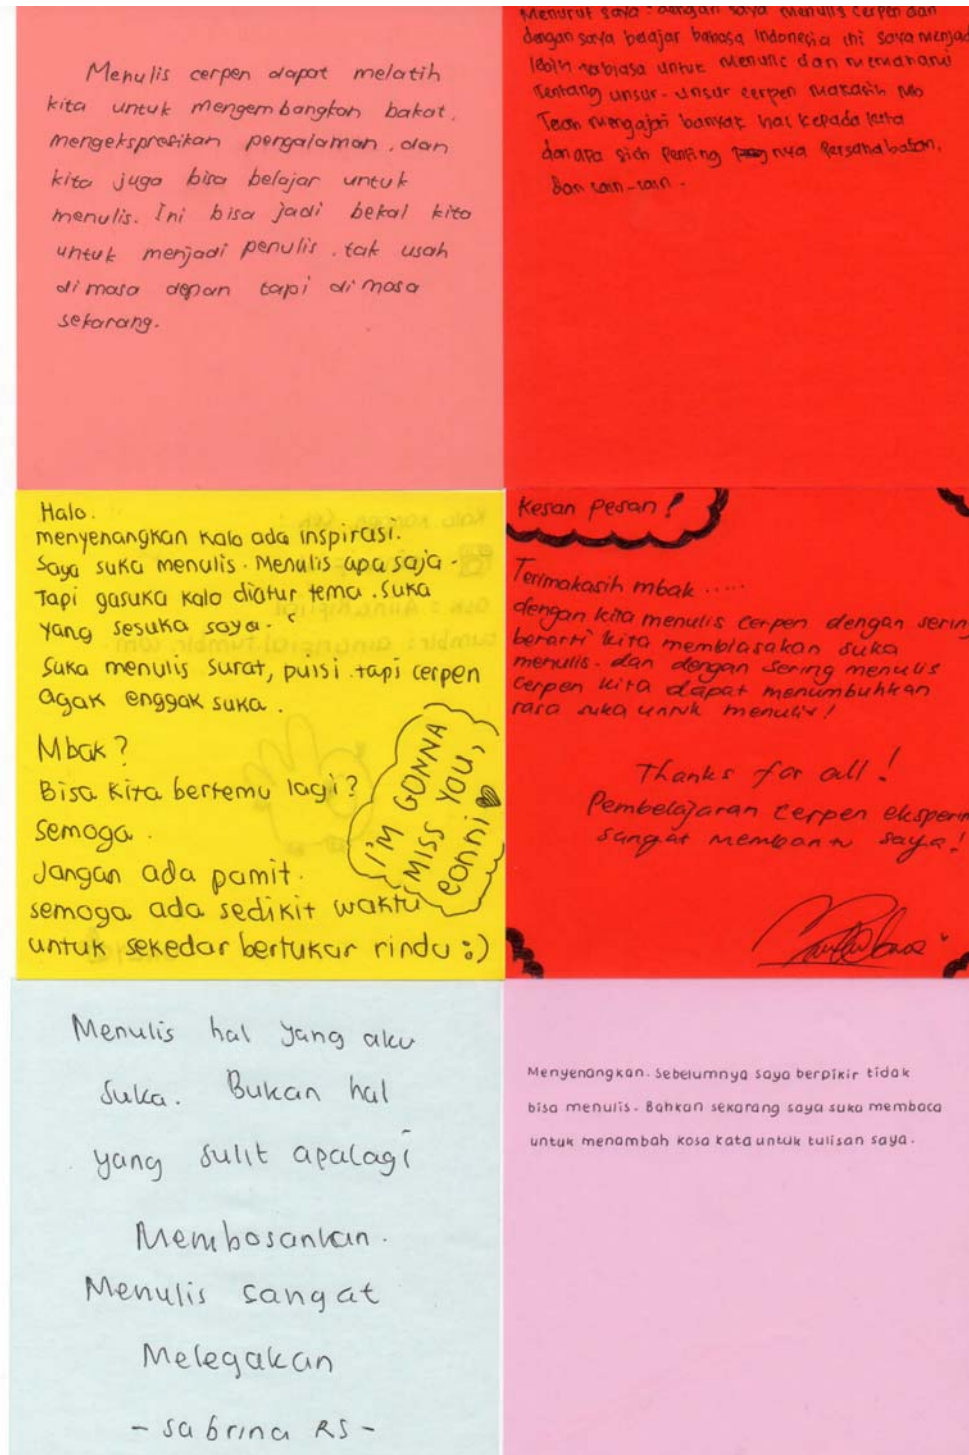 Menulis cerpen dapat melatih
kita untuk mengembangkan bakat,
mengekspresikan pengalaman, dan
kita juga bisa belajar untuk
menulis. Ini bisa jadi bekal kita
untuk menjadi penulis. tak usah
di masa depan tapi di masa
sekarang.
Menurut saya : dengan saya menulis cerpen dan
dengan saya belajar bahasa Indonesia ini saya menjad
lebih terbiasa untuk menulis dan memahami
tentang unsur-unsur cerpen makasih
mengajari banyak hal kepada kita
dan apa sich penting nya Persahabatan.
Dan lain-lain.
Halo.
menyenangkan kalo ada inspirasi.
Saya suka menulis. Menulis apa saja.
Tapi gasuka kalo diatur tema. Suka
yang sesuka saya.
Suka menulis surat, puisi. tapi cerpen
agak enggak suka.
Mbak?
Bisa kita bertemu lagi?
Semoga.
Jangan ada pamit.
semoga ada sedikit waktu
untuk sekedar bertukar rindu :)
I'M GONNA
MISS YOU,
eonni
Kesan Pesan!
Terimakasih mbak.....
dengan kita menulis cerpen dengan sering
berarti kita membiasakan suka
menulis. dan dengan sering menulis
cerpen kita dapat menumbuhkan
rasa suka untuk menulis!
Thanks for all!
Pembelajaran cerpen eksperim
sangat membantu saya!
Menulis hal yang aku
suka. Bukan hal
yang sulit apalagi
Membosankan.
Menulis sangat
Melegakan
- Sabrina RS -
Menyenangkan. Sebelumnya saya berpikir tidak
bisa menulis. Bahkan sekarang saya suka membaca
untuk menambah kosa kata untuk tulisan saya.